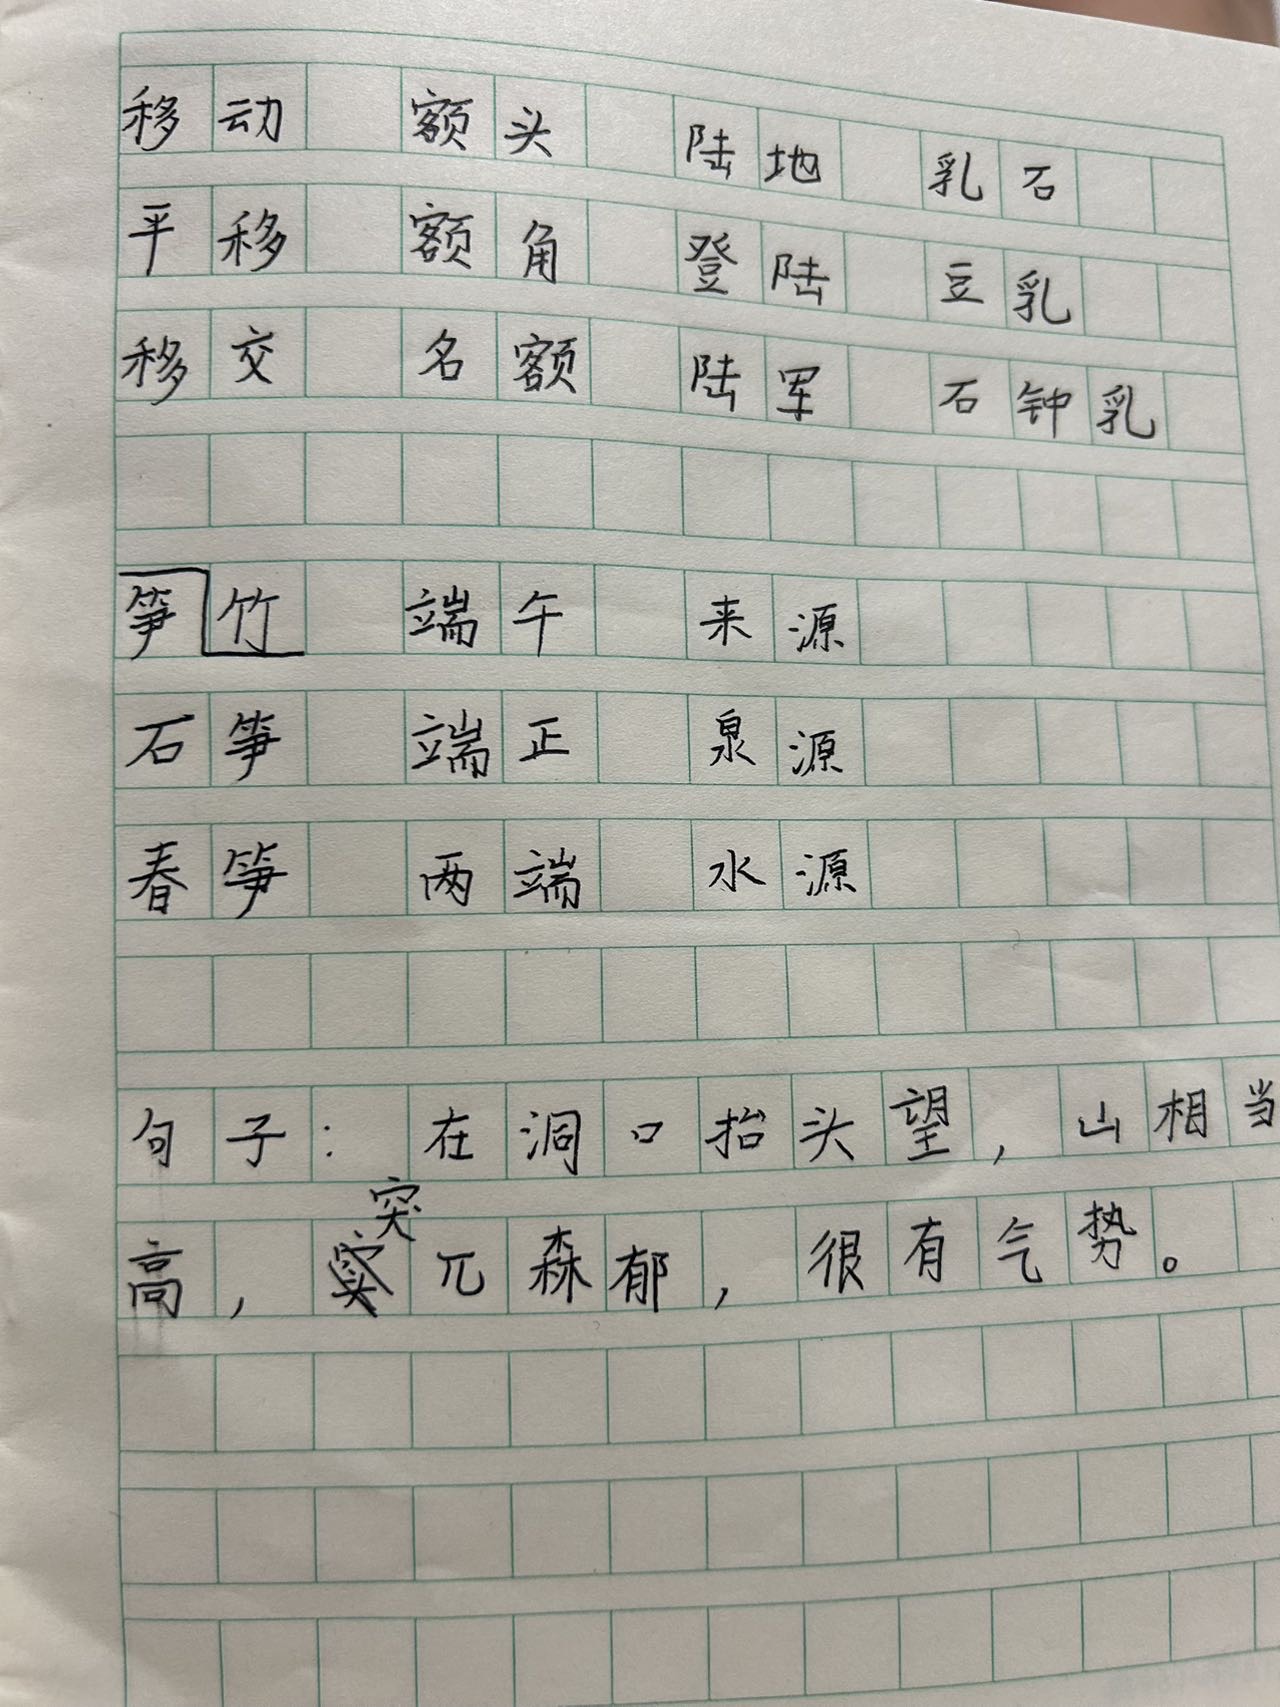 移动 额头 陆地 乳石
平移 额角 登陆 豆乳
移交 名额 陆军 石钟乳
笋竹 端午 来源
石笋 端正 泉源
春笋 两端 水源
句子：在洞口抬头望，山相当
高，突兀森郁，很有气势。